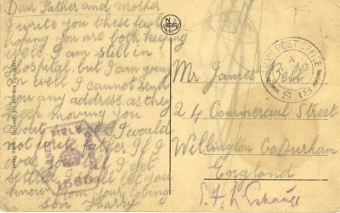 Dear Father and mother
I write you these few lines
hoping you are both keeping
well I am still in
hospital, but I am going
on well I cannot send
you any address, as they
keep moving you
about I would
not write Father If I
was you till I get
settled I will let you
know from your loving
son Harry
Mr James Bell
24 Commercial Street
Willington Co Durham
England
POST OFFICE
A
S.18